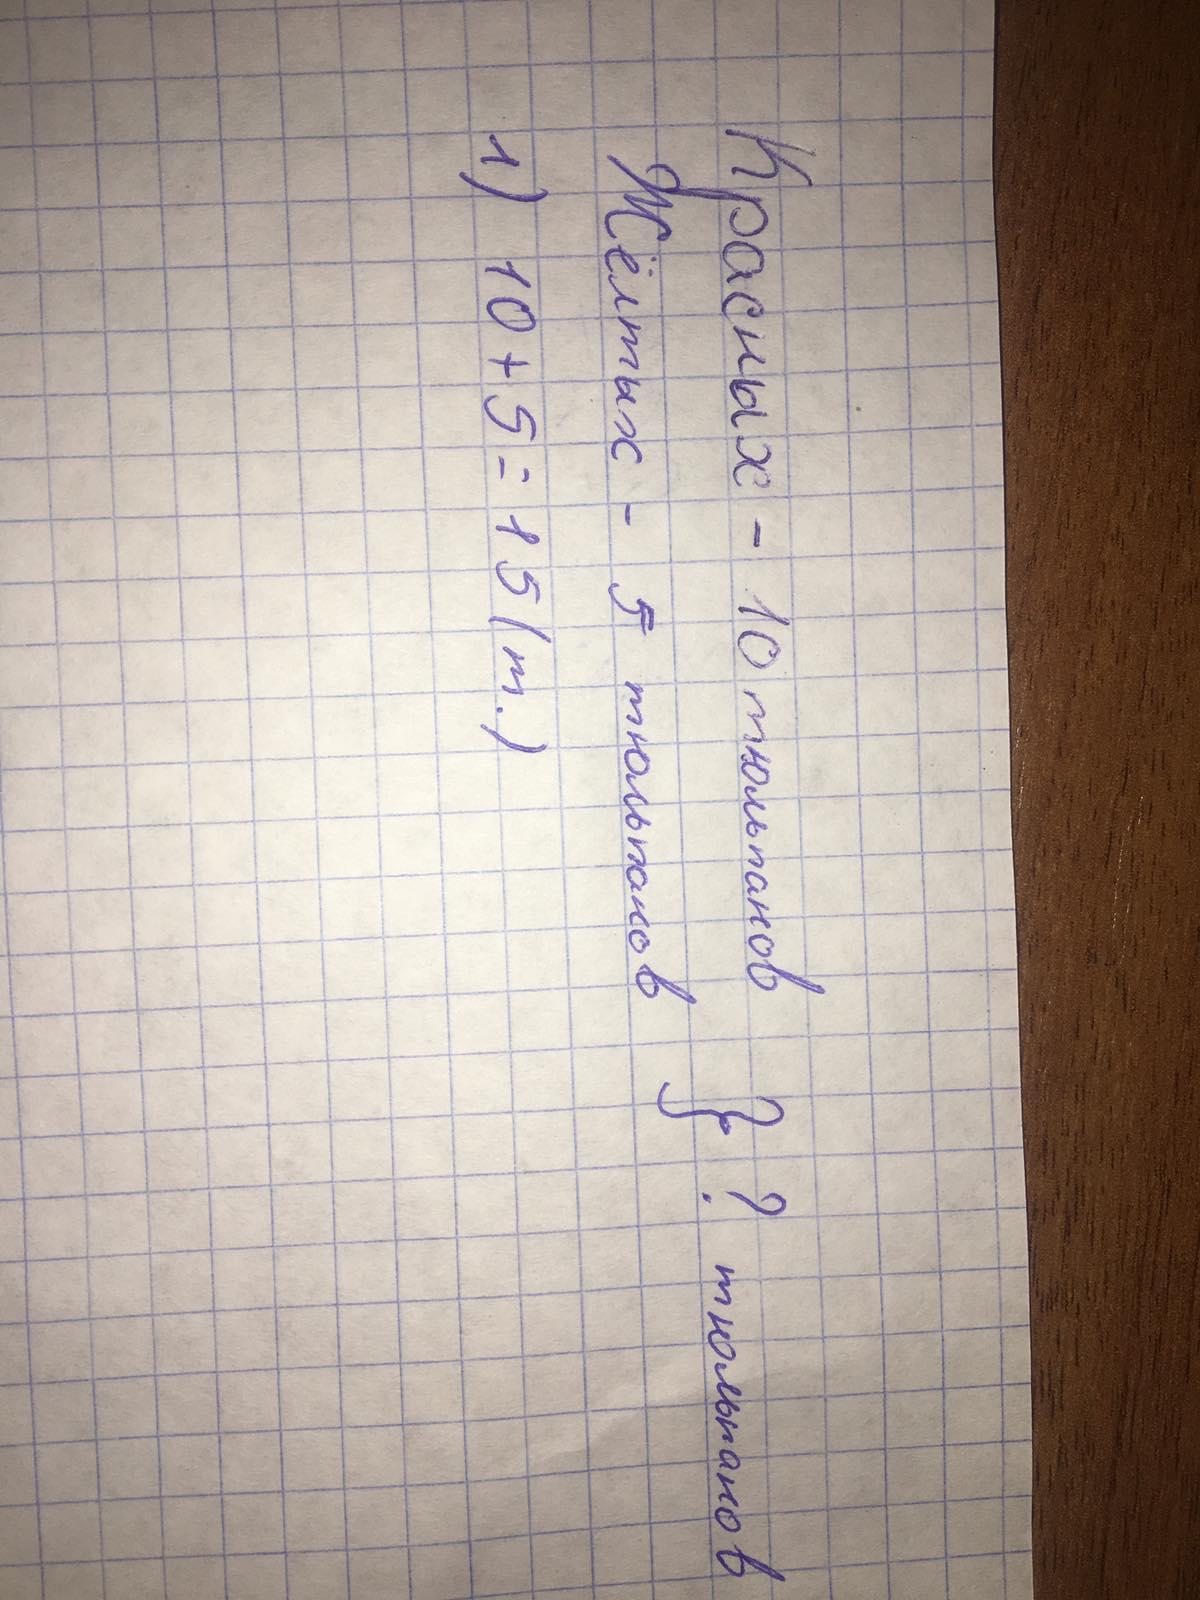 Красных - 10 тюльпанов
Жёлтых - 5 тюльпанов } ? тюльпанов
1) 10 + 5 = 15 (т.)